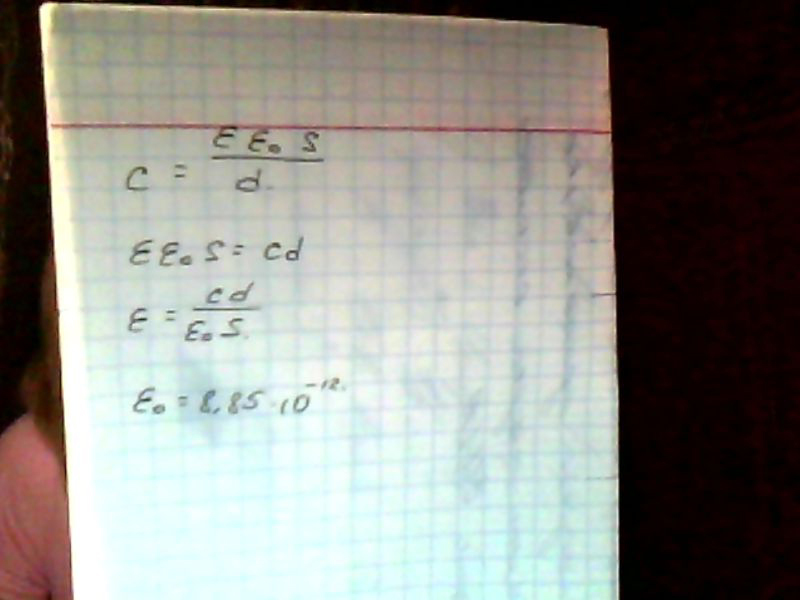 C = ε ε₀ S / d.
ε ε₀ S = cd
ε = cd / ε₀ S.
ε₀ = 8,85 · 10⁻¹².